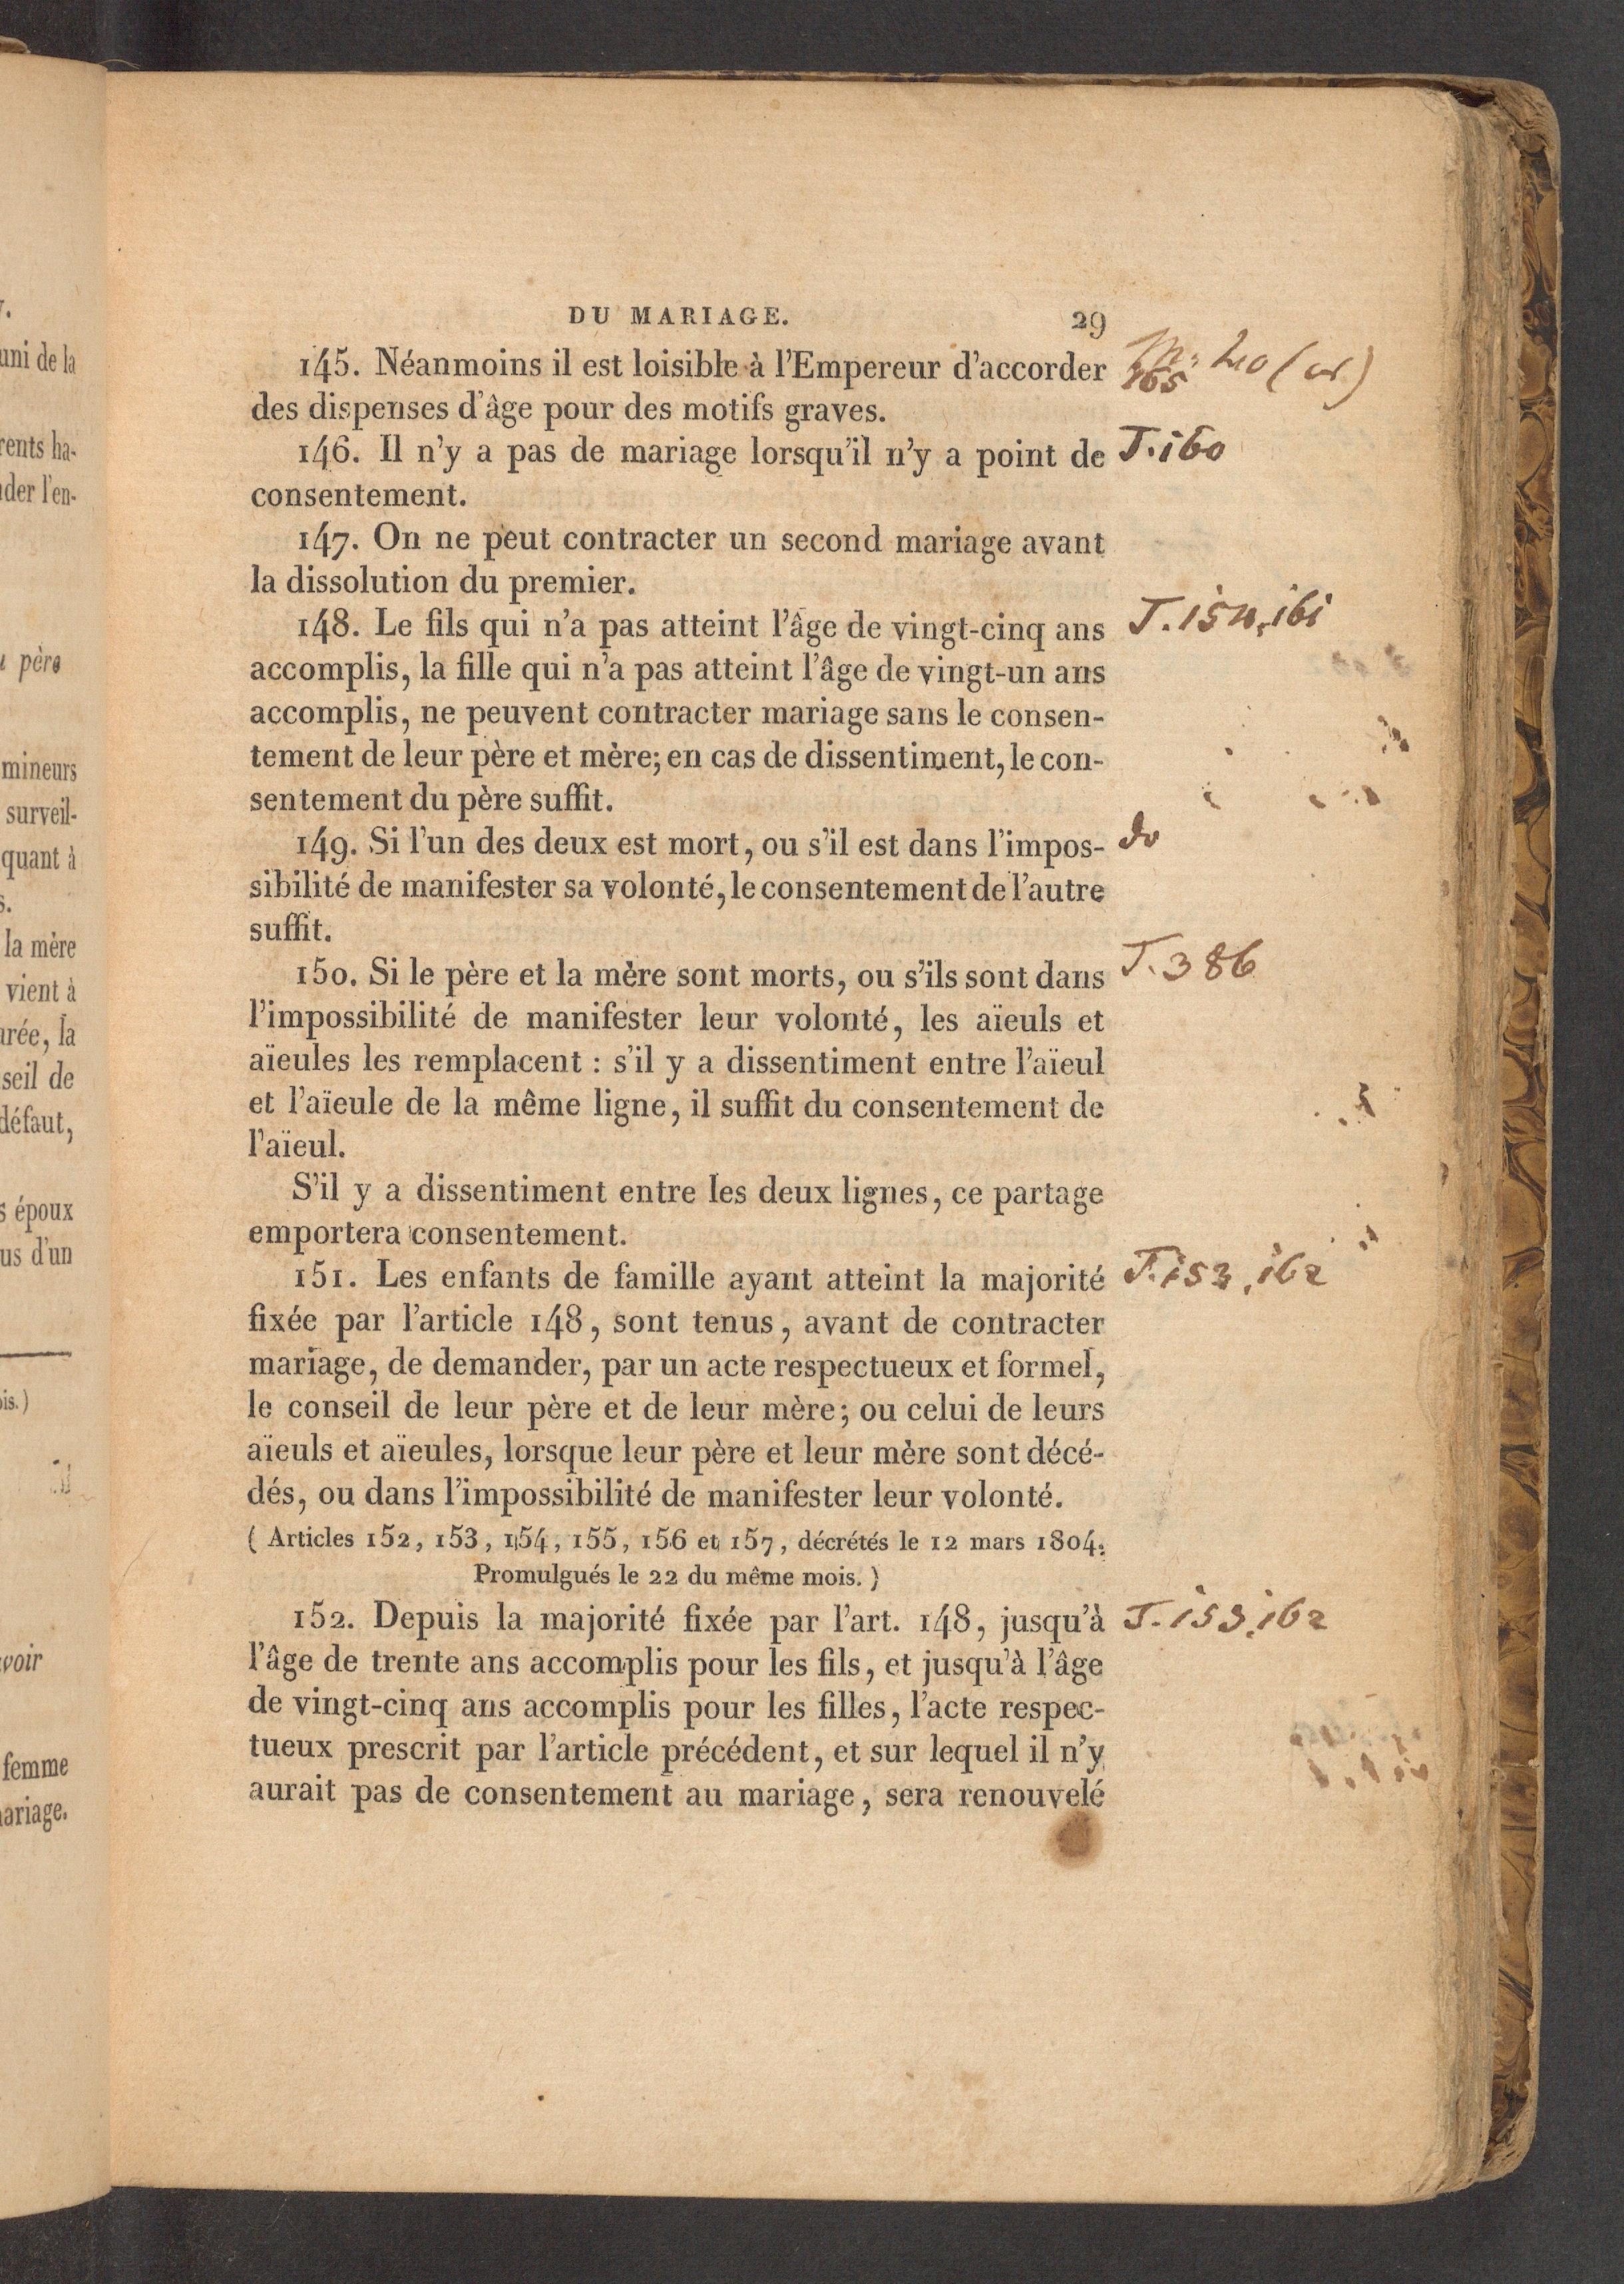 DU MARIAGE. 29
145. Néanmoins il est loisible à l'Empereur d'accorder
des dispenses d'âge pour des motifs graves.
146. Il n'y a pas de mariage lorsqu'il n'y a point de
T. 160
consentement.
147. On ne peut contracter un second mariage avant
la dissolution du premier.
148. Le fils qui n'a pas atteint l'âge de vingt-cinq ans
accomplis, la fille qui n'a pas atteint l'âge de vingt-un ans
accomplis, ne peuvent contracter mariage sans le consen-
tement de leur père et mère; en cas de dissentiment, le con-
sentement du père suffit.
149. Si l'un des deux est mort, ou s'il est dans l'impos-
do
sibilité de manifester sa volonté, le consentement de l'autre
suffit.
150. Si le père et la mère sont morts, ou s'ils sont dans
T. 386
l'impossibilité de manifester leur volonté, les aïeuls et
aïeules les remplacent : s'il y a dissentiment entre l'aïeul
et l'aïeule de la même ligne, il suffit du consentement de
l'aïeul.
S'il y a dissentiment entre les deux lignes, ce partage
emportera consentement.
151. Les enfants de famille ayant atteint la majorité
T. 153, 162
fixée par l'article 148, sont tenus, avant de contracter
mariage, de demander, par un acte respectueux et formel,
le conseil de leur père et de leur mère; ou celui de leurs
aïeuls et aïeules, lorsque leur père et leur mère sont décé-
dés, ou dans l'impossibilité de manifester leur volonté.
( Articles 152, 153, 154, 155, 156 et 157, décrétés le 12 mars 1804.
Promulgués le 22 du même mois. )
152. Depuis la majorité fixée par l'art. 148, jusqu'à
T. 153, 162
l'âge de trente ans accomplis pour les fils, et jusqu'à l'âge
de vingt-cinq ans accomplis pour les filles, l'acte respec-
tueux prescrit par l'article précédent, et sur lequel il n'y
aurait pas de consentement au mariage, sera renouvelé